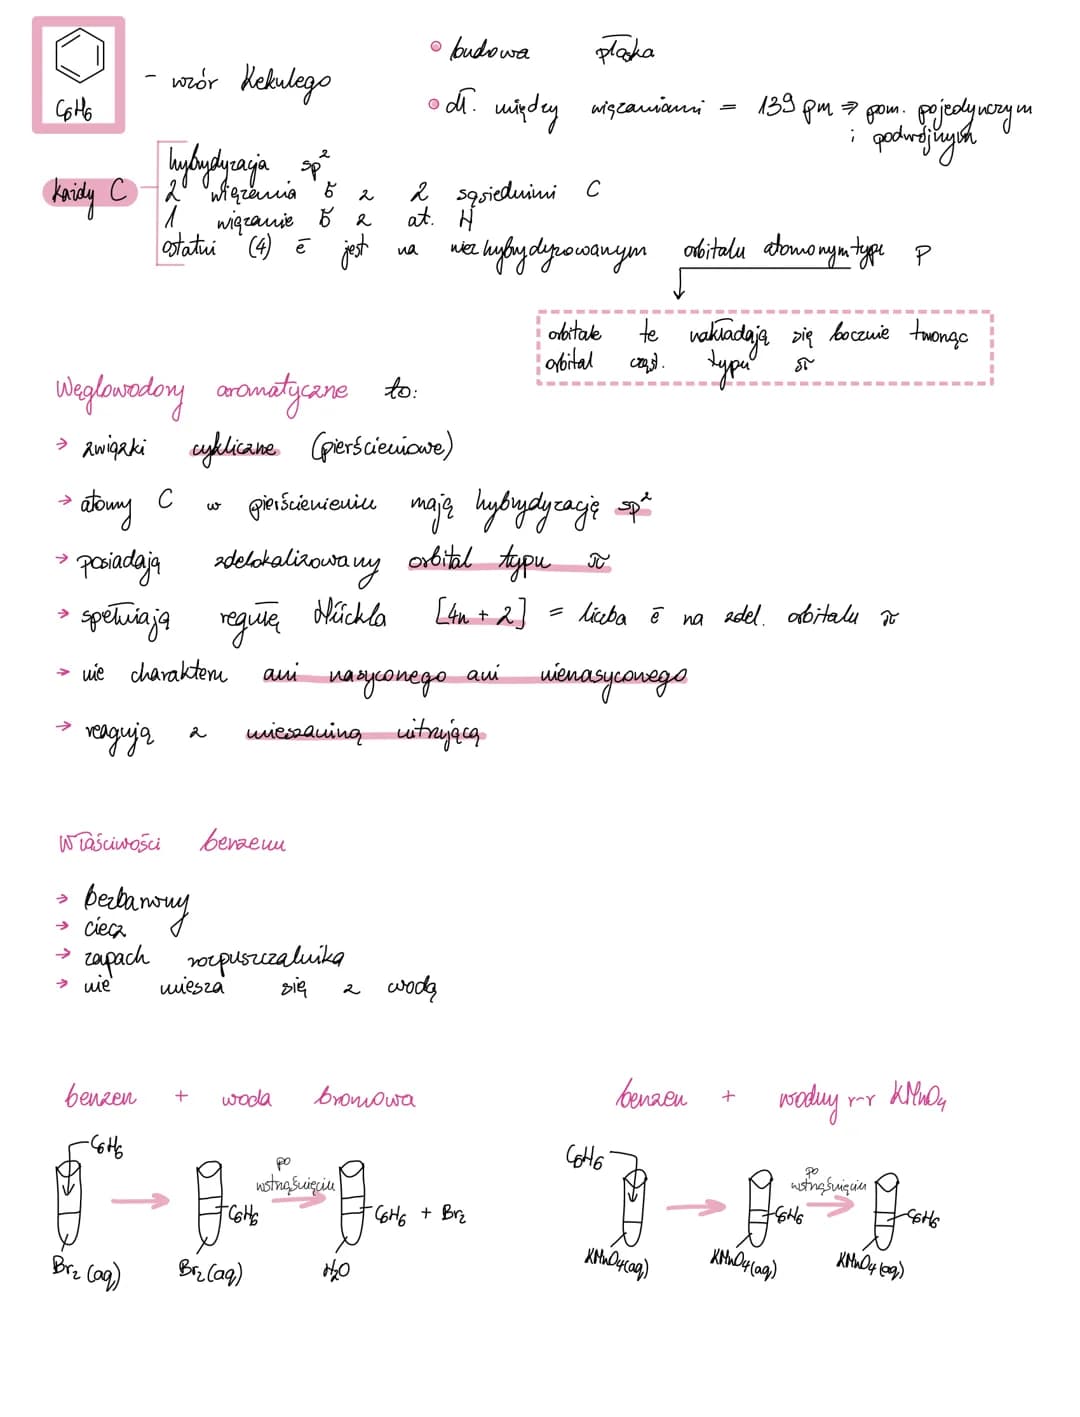 C6H6
- wzór Kekulego
• budowa płaska
• dł. między wiązaniami = 139 pm ⇒ pom. pojedynczym i podwójnym
każdy C
hybrydyzacja sp²
2 wiązania σ z 2 sąsiednimi C
1 wiązanie σ z at. H
ostatni (4) ē jest na niezhybrydyzowanym orbitalu atomowym typu p
orbitale te nakładają się bocznie tworząc
orbital cząst. typu π
Węglowodory aromatyczne to:
→ związki cykliczne (pierścieniowe)
→ atomy C w pierścienieniu mają hybrydyzację sp²
→ posiadają zdelokalizowany orbital typu π
→ spełniają regułę Hückla [4n + 2] = liczba ē na zdel. orbitalu π
→ nie charakteru ani nasyconego ani nienasyconego
→ reagują z mieszaniną nitrującą
Właściwości benzenu
→ bezbarwny
→ ciecz
→ zapach rozpuszczalnika
→ nie miesza się z wodą
benzen + woda bromowa
C6H6
Br2 (aq)
C6H6
Br2 (aq)
po wstrząśnięciu
C6H6 + Br2
H2O
benzen + wodny r-r KMnO4
C6H6
KMnO4(aq)
C6H6
KMnO4(aq)
po wstrząśnięciu
C6H6
KMnO4(aq)